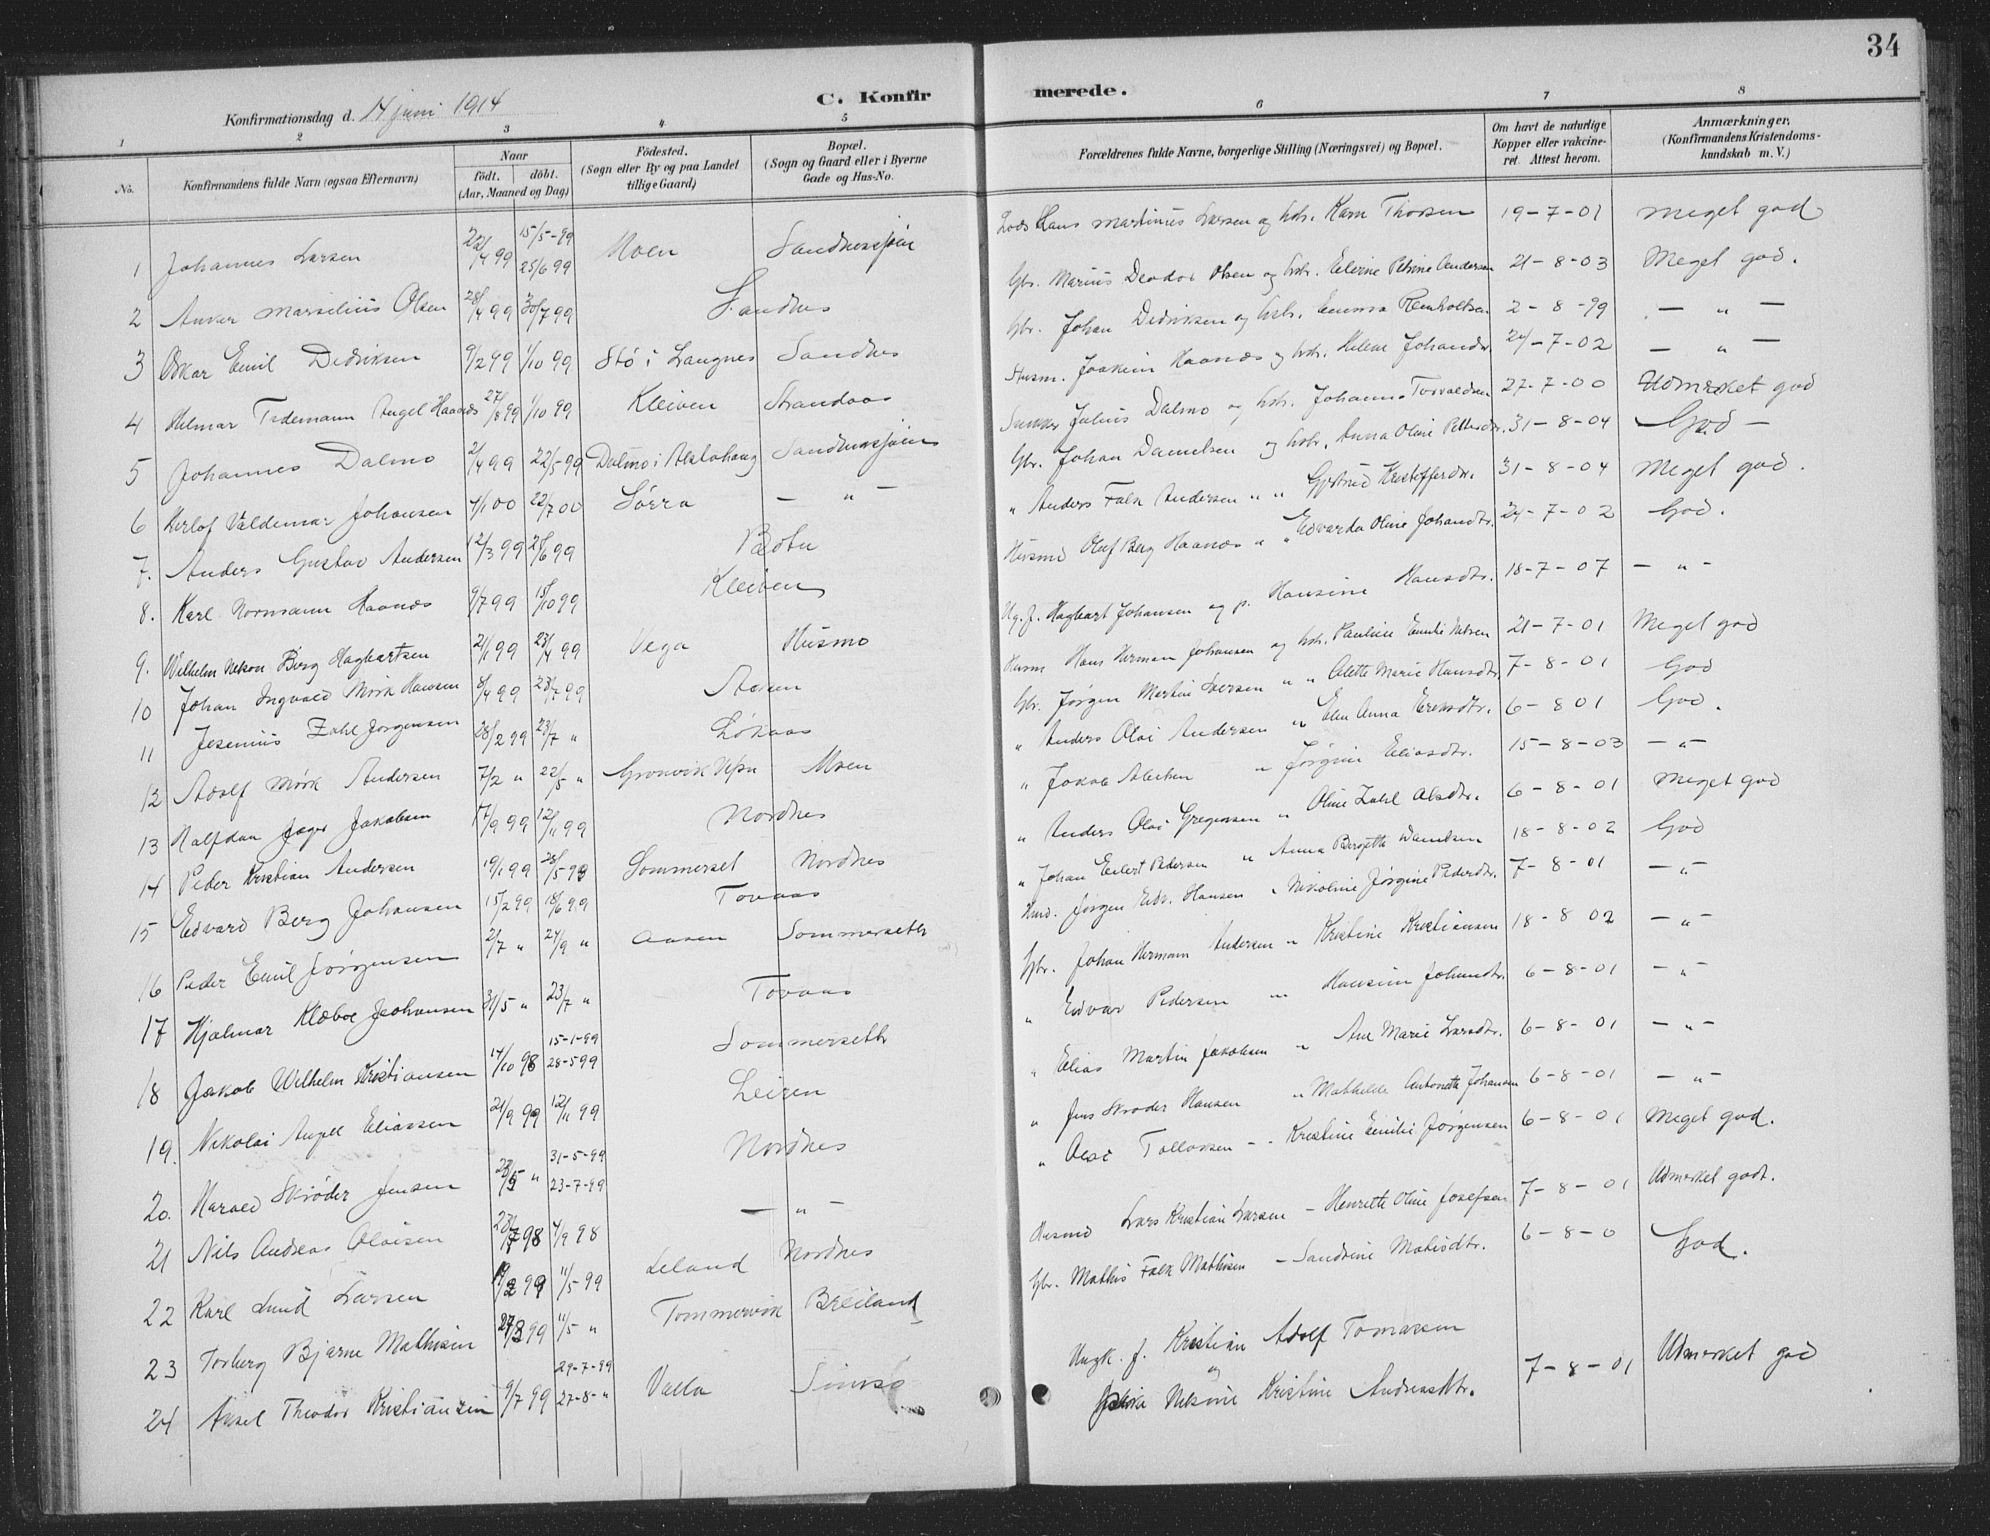 34
Konfirmationsdag d. 14 juni 1914
C. Konfir
merede.
1 2 3 4 5 6 7 8
No.
Konfirmandens fulde Navn (ogsaa Efternavn).
Naar
født. døbt.
(Aar, Maaned og Dag)
Fødested.
(Sogn eller By og paa Landet
tillige Gaard)
Bopæl.
(Sogn og Gaard eller i Byerne
Gade og Hus-No.
Forældrenes fulde Navne, borgerlige Stilling (Næringsvei) og Bopæl.
Om havt de naturlige
Kopper eller vakcine-
ret. Attest herom.
Anmærkninger.
(Konfirmandens Kristendoms-
kundskab m. V.)
1 Johannes Larsen 22/4 99 15/5-99 25/6 99 Moen Sandnessjøen Hans Martinus Larsen og hst. Karn Thorsen 19-7-01 Meget god
2 Anker Marselius Olsen 28/4 99 30/7 99 Sandnes Gbr. Marius Deodor Olsen og hst. Elerine Petrine Andersen 21-8-03 Meget god.
3 Oskar Emil Dedriksen 9/2 99 1/10 99 Stø i Langnes Sandnes Gbr. Johan Dedriksen og hst. Emma Reinholtsen 2-8-99 - " -
4 Helmar Tidemann Angel Haanes 27/8 99 1/10 99 Kleiven Strandaas Husm. Joakim Haanes og hst. Helene Johansdr. 24-7-02 - " -
5 Johannes Dalmo 2/4 99 22/5-99 Dalmo i Alstahaug Sandnessjøen Julius Dalmo og hst. Johanna Torvaldsen 27-7-00 Udmerket god
6 Herlof Valdemar Johansen 4/1 00 22/7 00 Sørra - " - Gbr. Johan Danielsen og hst. Anna Oline Pettersdr. 31-8-04 God -
7. Anders Gustav Andersen 12/3 99 25/6 99 Botn " Anders Falk Andersen " " Gjertrud Kristoffersdr. 31-8-04 Meget god.
8. Karl Normann Haanes 9/7 99 15/10 99 Kleiven Husmd Oluf Berg Haanes " " Edvarda Oline Johansdtr. 24-7-02 God.
9. Wilhelm Nekon Berg Hagbartsen 21/1 99 23/4 99 Vega Husmo Ug. f. Hagbart Johansen og p. Hansine Hansdtr. 18-7-07 - " -
10 Johan Ingvald Mørk Hansen 8/4 99 23/7 99 Aasen Husm Hans Herman Johansen og hst. Pauline Emilie Nilsen 21-7-01 Meget god
11 Jesenius Zahl Jørgensen 26/2 99 23/7 " Løkaas Gbr. Jørgen Martin Iversen " " Alette Marie Hansdtr. 7-8-01 God
12 Adolf Mørk Andersen 7/2 " 22/5 " Gronvik Vefsn Moen " Anders Olai Andersen " " Elen Anna Eriksdtr. 6-8 01 God.
13 Halfdan Jæger Jakobsen 17/9 99 12/11 99 Nordnes " Jakob " Jørgine Eliasdtr. 15-8-03 - " -
14 Peder Kristian Andersen 19/1 99 28/5-99 Sommerset Nordnes " Anders Olai Gregersen " Oline Zahl Olsdtr. 6-8-01 Meget god
15 Edvard Berg Johansen 15/2 99 18/6 99 Tovaas " Johan Eilert Pedersen " Anna Bergette Danielsen 18-8-02 God
16 Peder Emil Jørgensen 2/7 " 24/9 " Aasen Sommersetr Husd. Jørgen Edv. Hansen " Nikoline Jørgine Pedersdtr. 7-8-01 - " -
17 Hjalmar Klæboe Johansen 31/5 " 23/7 " Tovaas Gbr. Johan Hermann Andersen " Kristine Kristiansen 18-8 02 - " -
18 Jakob Wilhelm Kristiansen 14/10 98 15-1-99 28-5 99 Sommersetr " Edvar Pedersen " Hansine Johansdtr. 6-8-01 - " -
19. Nikolai Angell Eliassen 21/9 99 12/11 99 Leiren " Elias Martin Jakobsen " Ane Marie Larsdtr. 6-8-01 - " -
20. Harald Skrøder Jensen 31-5-99 23-7-99 Nordnes " Jens Skroder Hansen " Mathilde Antonette Johansen 6-8-01 - " -
21 Nils Andreas Olaisen 23/7 98 4/9 98 - " - " Olai Tollevsen - Kristine Emilie Jørgensen 6-8-01 Meget god.
22 Karl Lund Larsen 11/5-99 Leland Nordnes Husmd Lars Kristian Larsen - Henrette Oline Josefsen 7-8-01 Udmerket godt.
23 Torberg Bjarne Mathisen 27/3 99 11/5 " Tommervik Breiland Gbr. Mathis Falk Mathisen - Sandrine Matisdtr. 6-8-0 God.
24 Aksel Theodor Kristiansen 9/7 99 29-7-99 27-8-" Valla Ungk. f. Kristian Adolf Tomassen
og Nilsine Kristine Andreasdtr. 7-8-01 Udmerket god